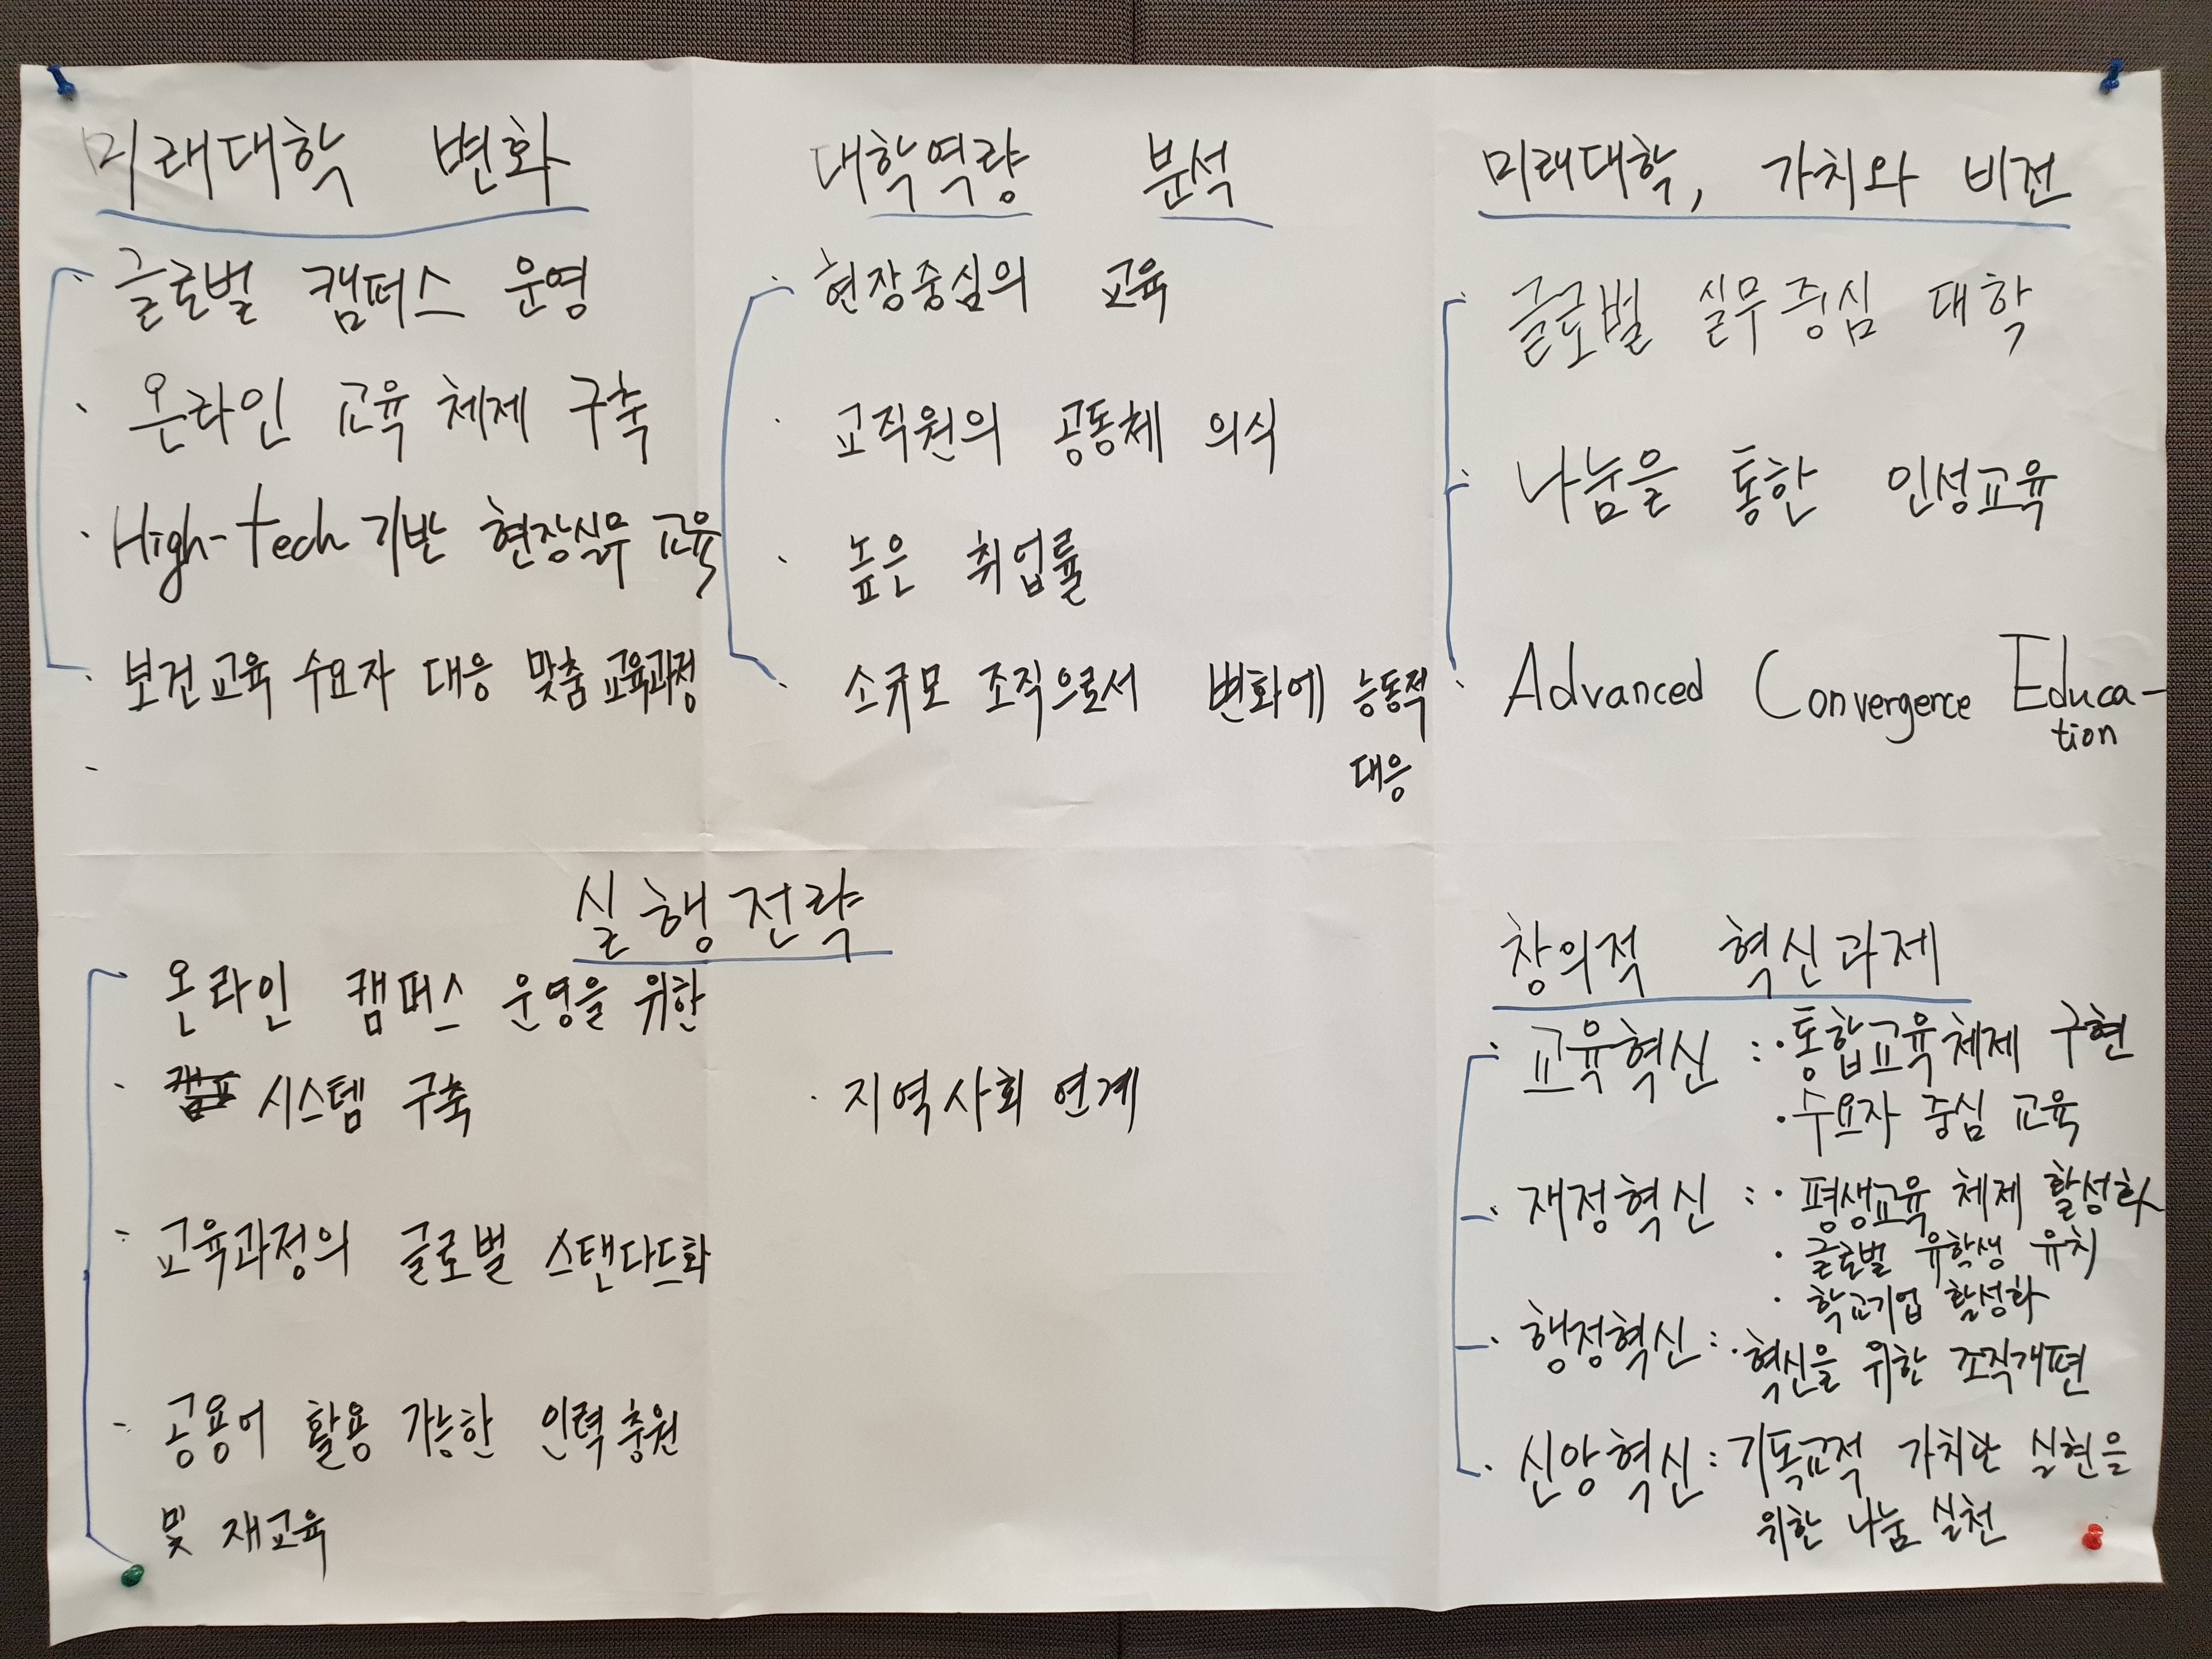 미래대학 변화
글로벌 캠퍼스 운영
온라인 교육 체제 구축
High-tech 기반 현장실무 교육
보건교육 수요자 대응 맞춤 교육과정
대학역량 분석
현장중심의 교육
교직원의 공동체 의식
높은 취업률
소규모 조직으로서 변화에 능동적
대응
미래대학, 가치와 비전
글로벌 실무중심 대학
나눔을 통한 인성교육
Advanced Convergence Educa-
tion
실행전략
온라인 캠퍼스 운영을 위한
시스템 구축
교육과정의 글로벌 스탠다드화
공용어 활용 가능한 인력충원
및 재교육
지역사회 연계
창의적 혁신과제
교육혁신 : · 통합교육체제 구현
· 수요자 중심 교육
재정혁신 : · 평생교육 체제 활성화
· 글로벌 유학생 유치
· 학교기업 활성화
행정혁신 : · 혁신을 위한 조직개편
신앙혁신 : 기독교적 가치관 실현을
위한 나눔 실천